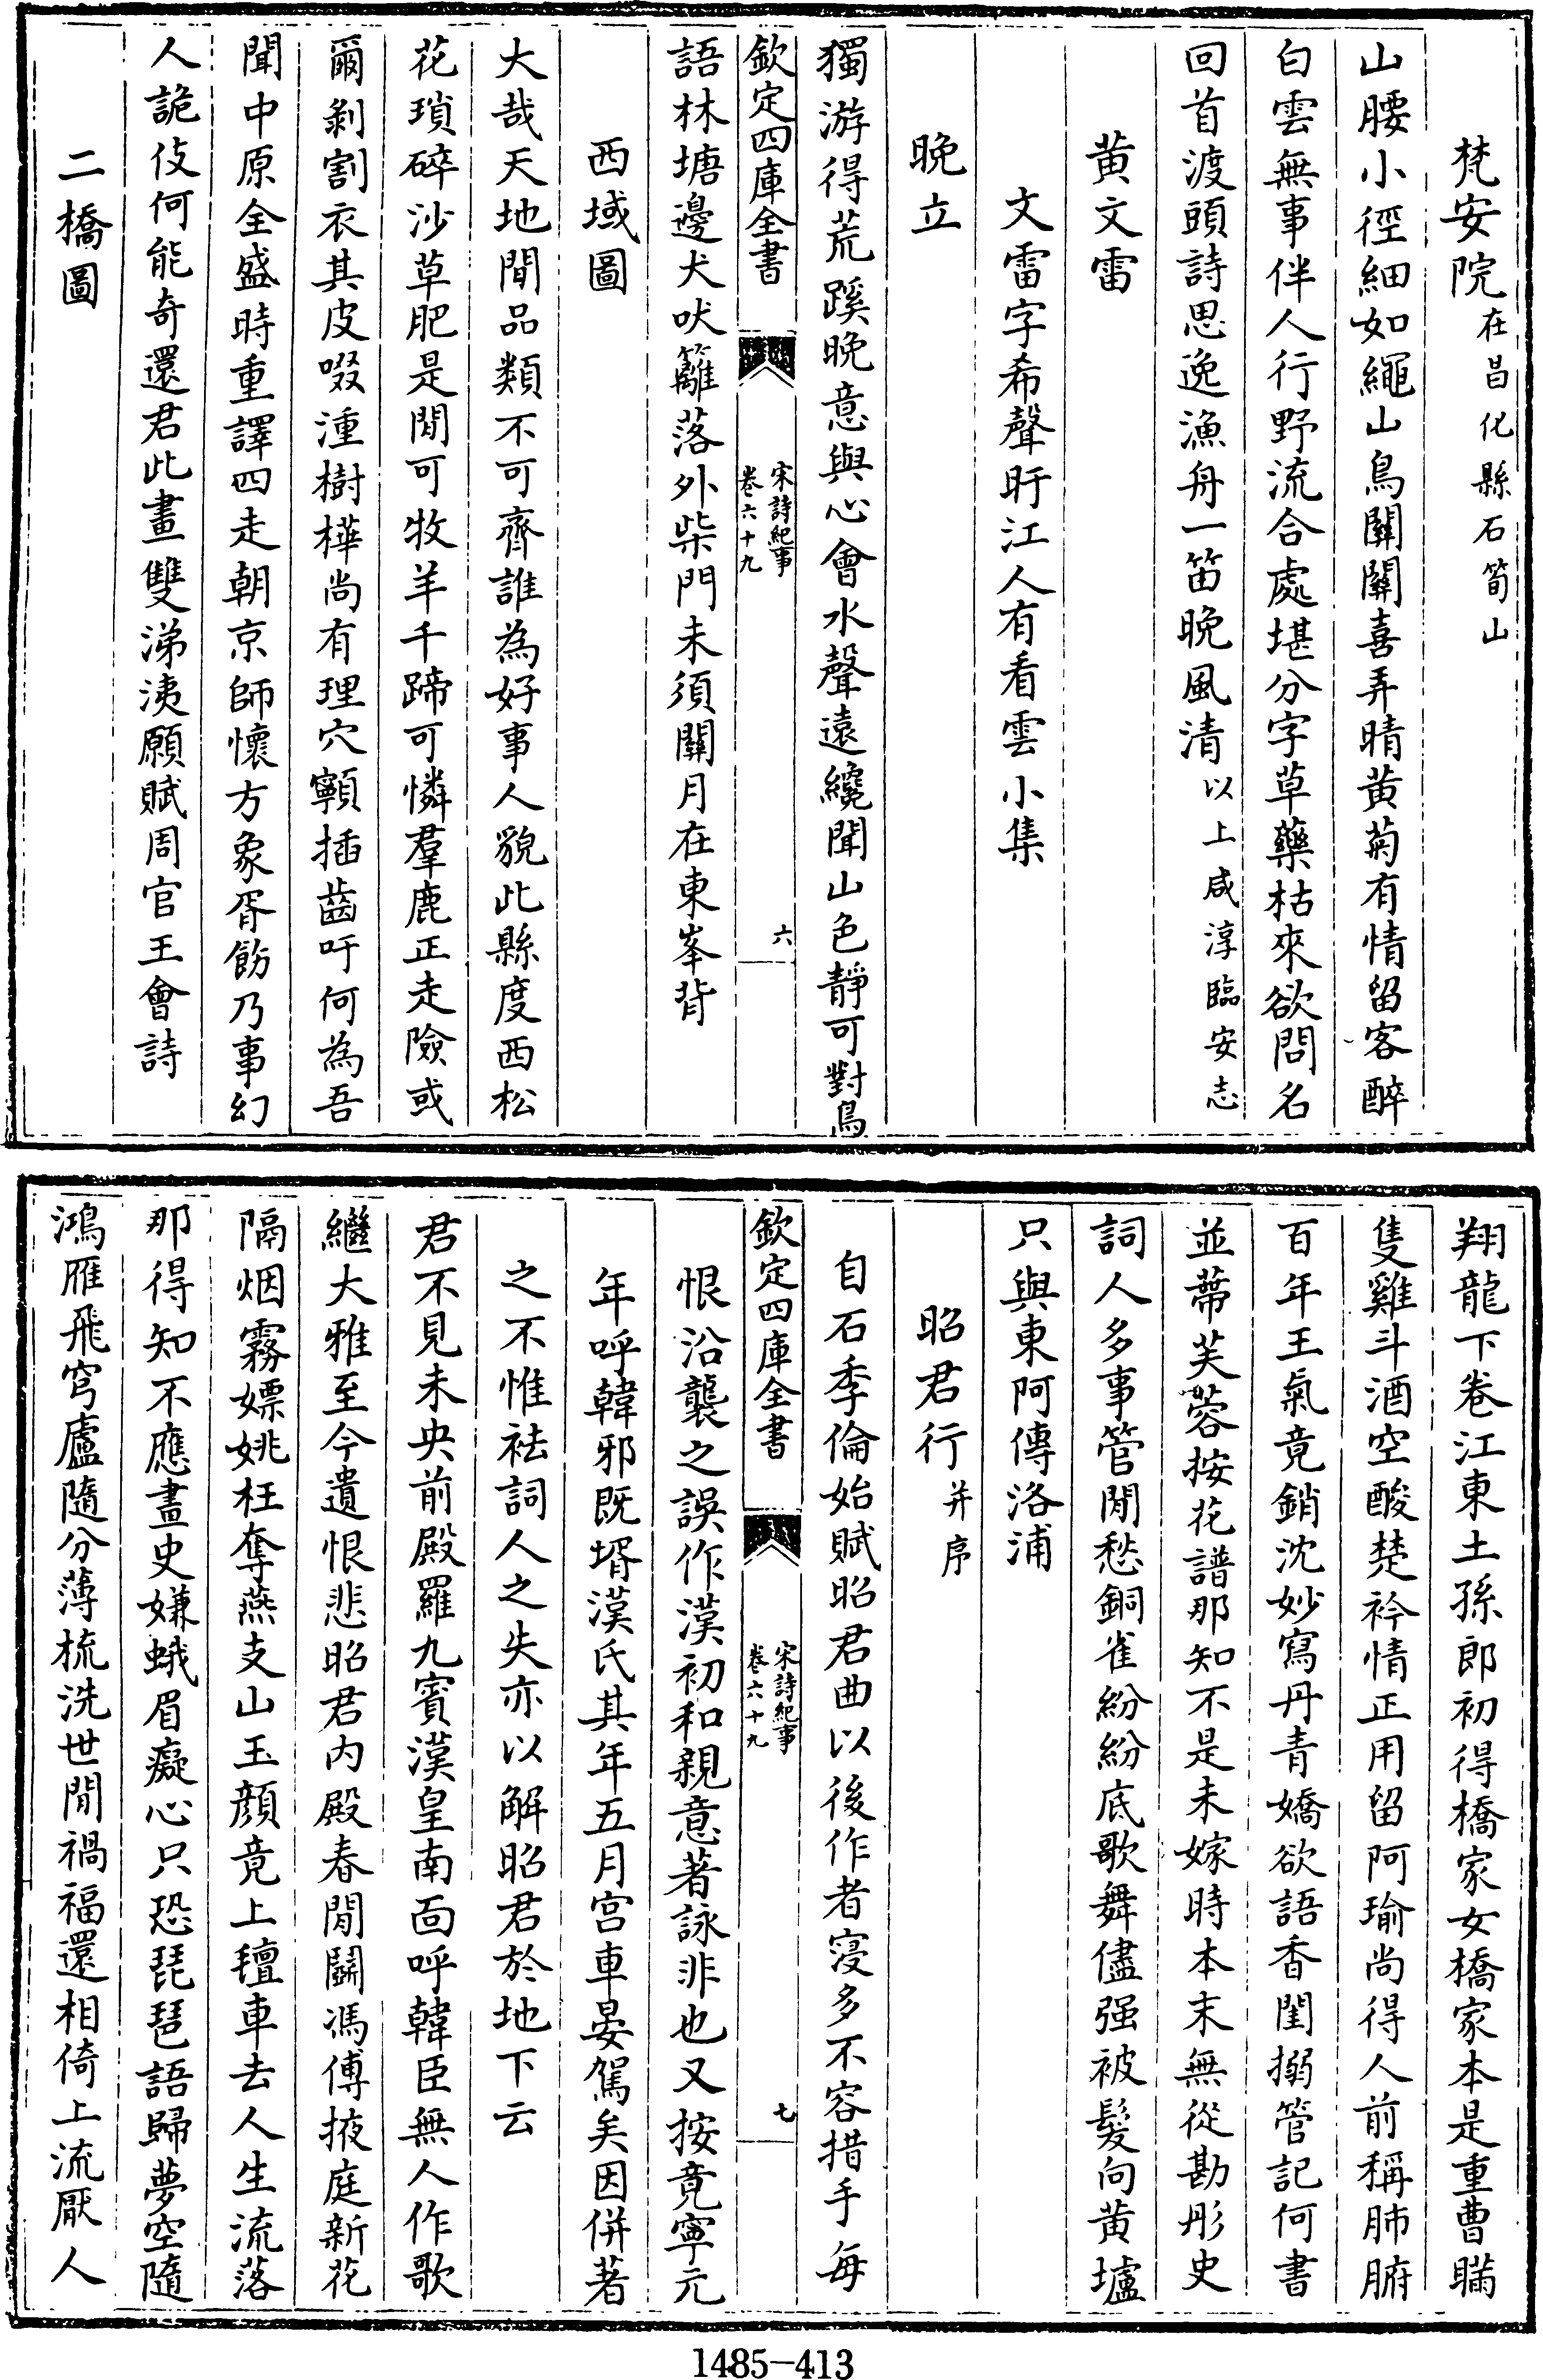 梵安院在昌化縣石筍山
山腰小徑細如繩山鳥關關喜弄晴黄菊有情留客醉
白雲無事伴人行野流合處堪分字草藥枯來欲問名
回首渡頭詩思逸漁舟一笛晚風清以上咸淳臨安志
黄文雷
文雷字希聲盱江人有看雲小集
晚立
獨游得荒蹊晚意與心會水聲遠纔聞山色靜可對鳥
欽定四庫全書
宋詩紀事
卷六十九
六
語林塘邊犬吠籬落外柴門未須關月在東峯背
西域圖
大哉天地間品類不可齊誰為好事人貌此縣度西松
花瑣碎沙草肥是間可牧羊千蹄可憐羣鹿正走險或
爾剝割衣其皮啜湩樹樺尚有理穴顙插齒吁何為吾
聞中原全盛時重譯四走朝京師懷方象胥飭乃事幻
人詭伎何能奇還君此畫雙涕洟願賦周官王會詩
二橋圖
翔龍下卷江東土孫郎初得橋家女橋家本是重曹瞞
隻雞斗酒空酸楚衿情正用留阿瑜尚得人前稱肺腑
百年王氣竟銷沈妙寫丹青嬌欲語香閨搦管記何書
並蔕芙蓉按花譜那知不是未嫁時本末無從勘彤史
詞人多事管閒愁銅雀紛紛底歌舞儘强被髮向黄壚
只與東阿傳洛浦
昭君行并序
自石季倫始賦昭君曲以後作者寖多不容措手每
欽定四庫全書
宋詩紀事
卷六十九
七
恨沿襲之誤作漢初和親意著詠非也又按竟寧元
年呼韓邪既壻漢氏其年五月宫車晏駕矣因併著
之不惟祛詞人之失亦以解昭君於地下云
君不見未央前殿羅九賓漢皇南面呼韓臣無人作歌
繼大雅至今遺恨悲昭君内殿春閒鬭馮傅掖庭新花
隔烟霧嫖姚枉奪燕支山玉顔竟上氊車去人生流落
那得知不應畫史嫌蛾眉癡心只恐琵琶語歸夢空隨
鴻雁飛穹廬隨分薄梳洗世間禍福還相倚上流厭人
1485-413